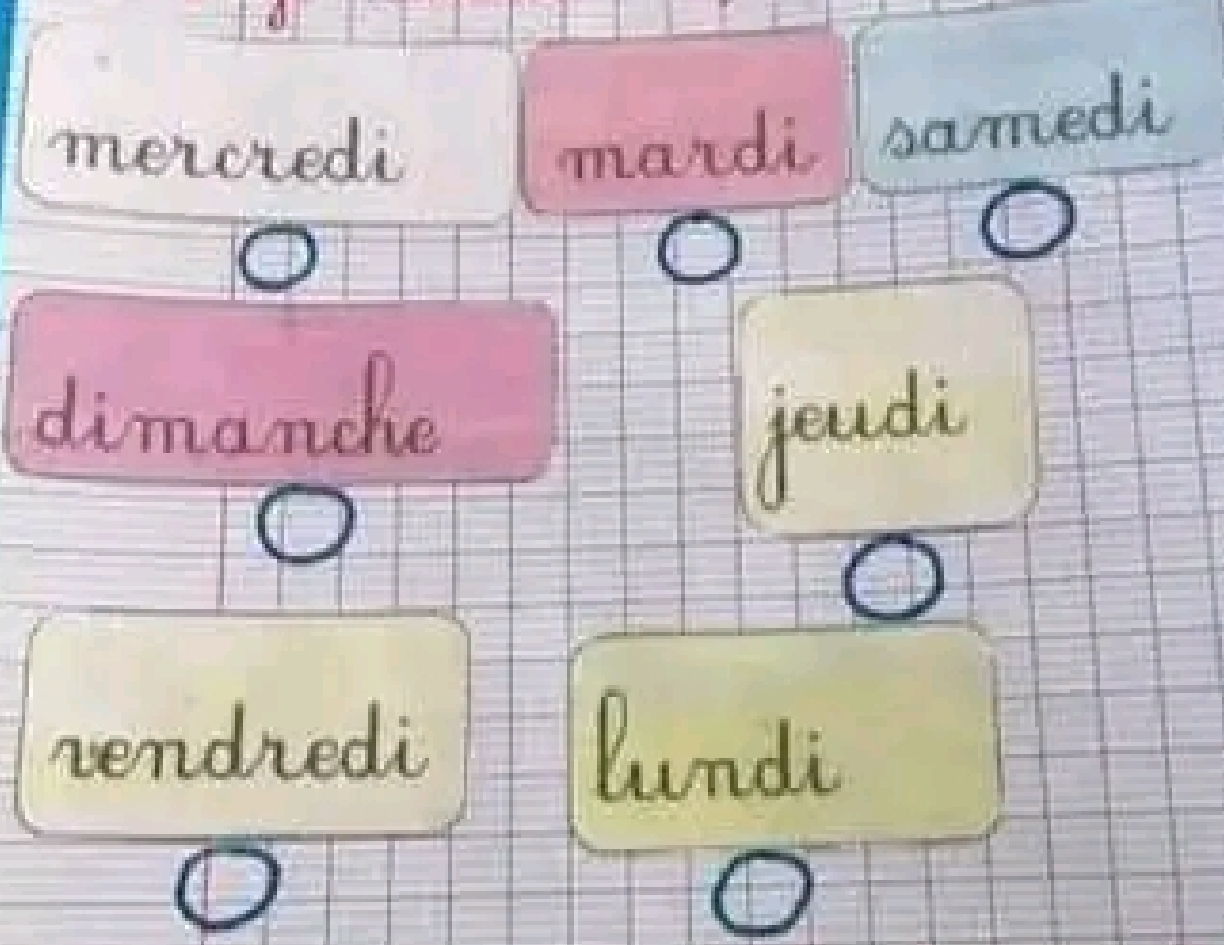 mercredi mardi samedi
dimanche jeudi
vendredi lundi